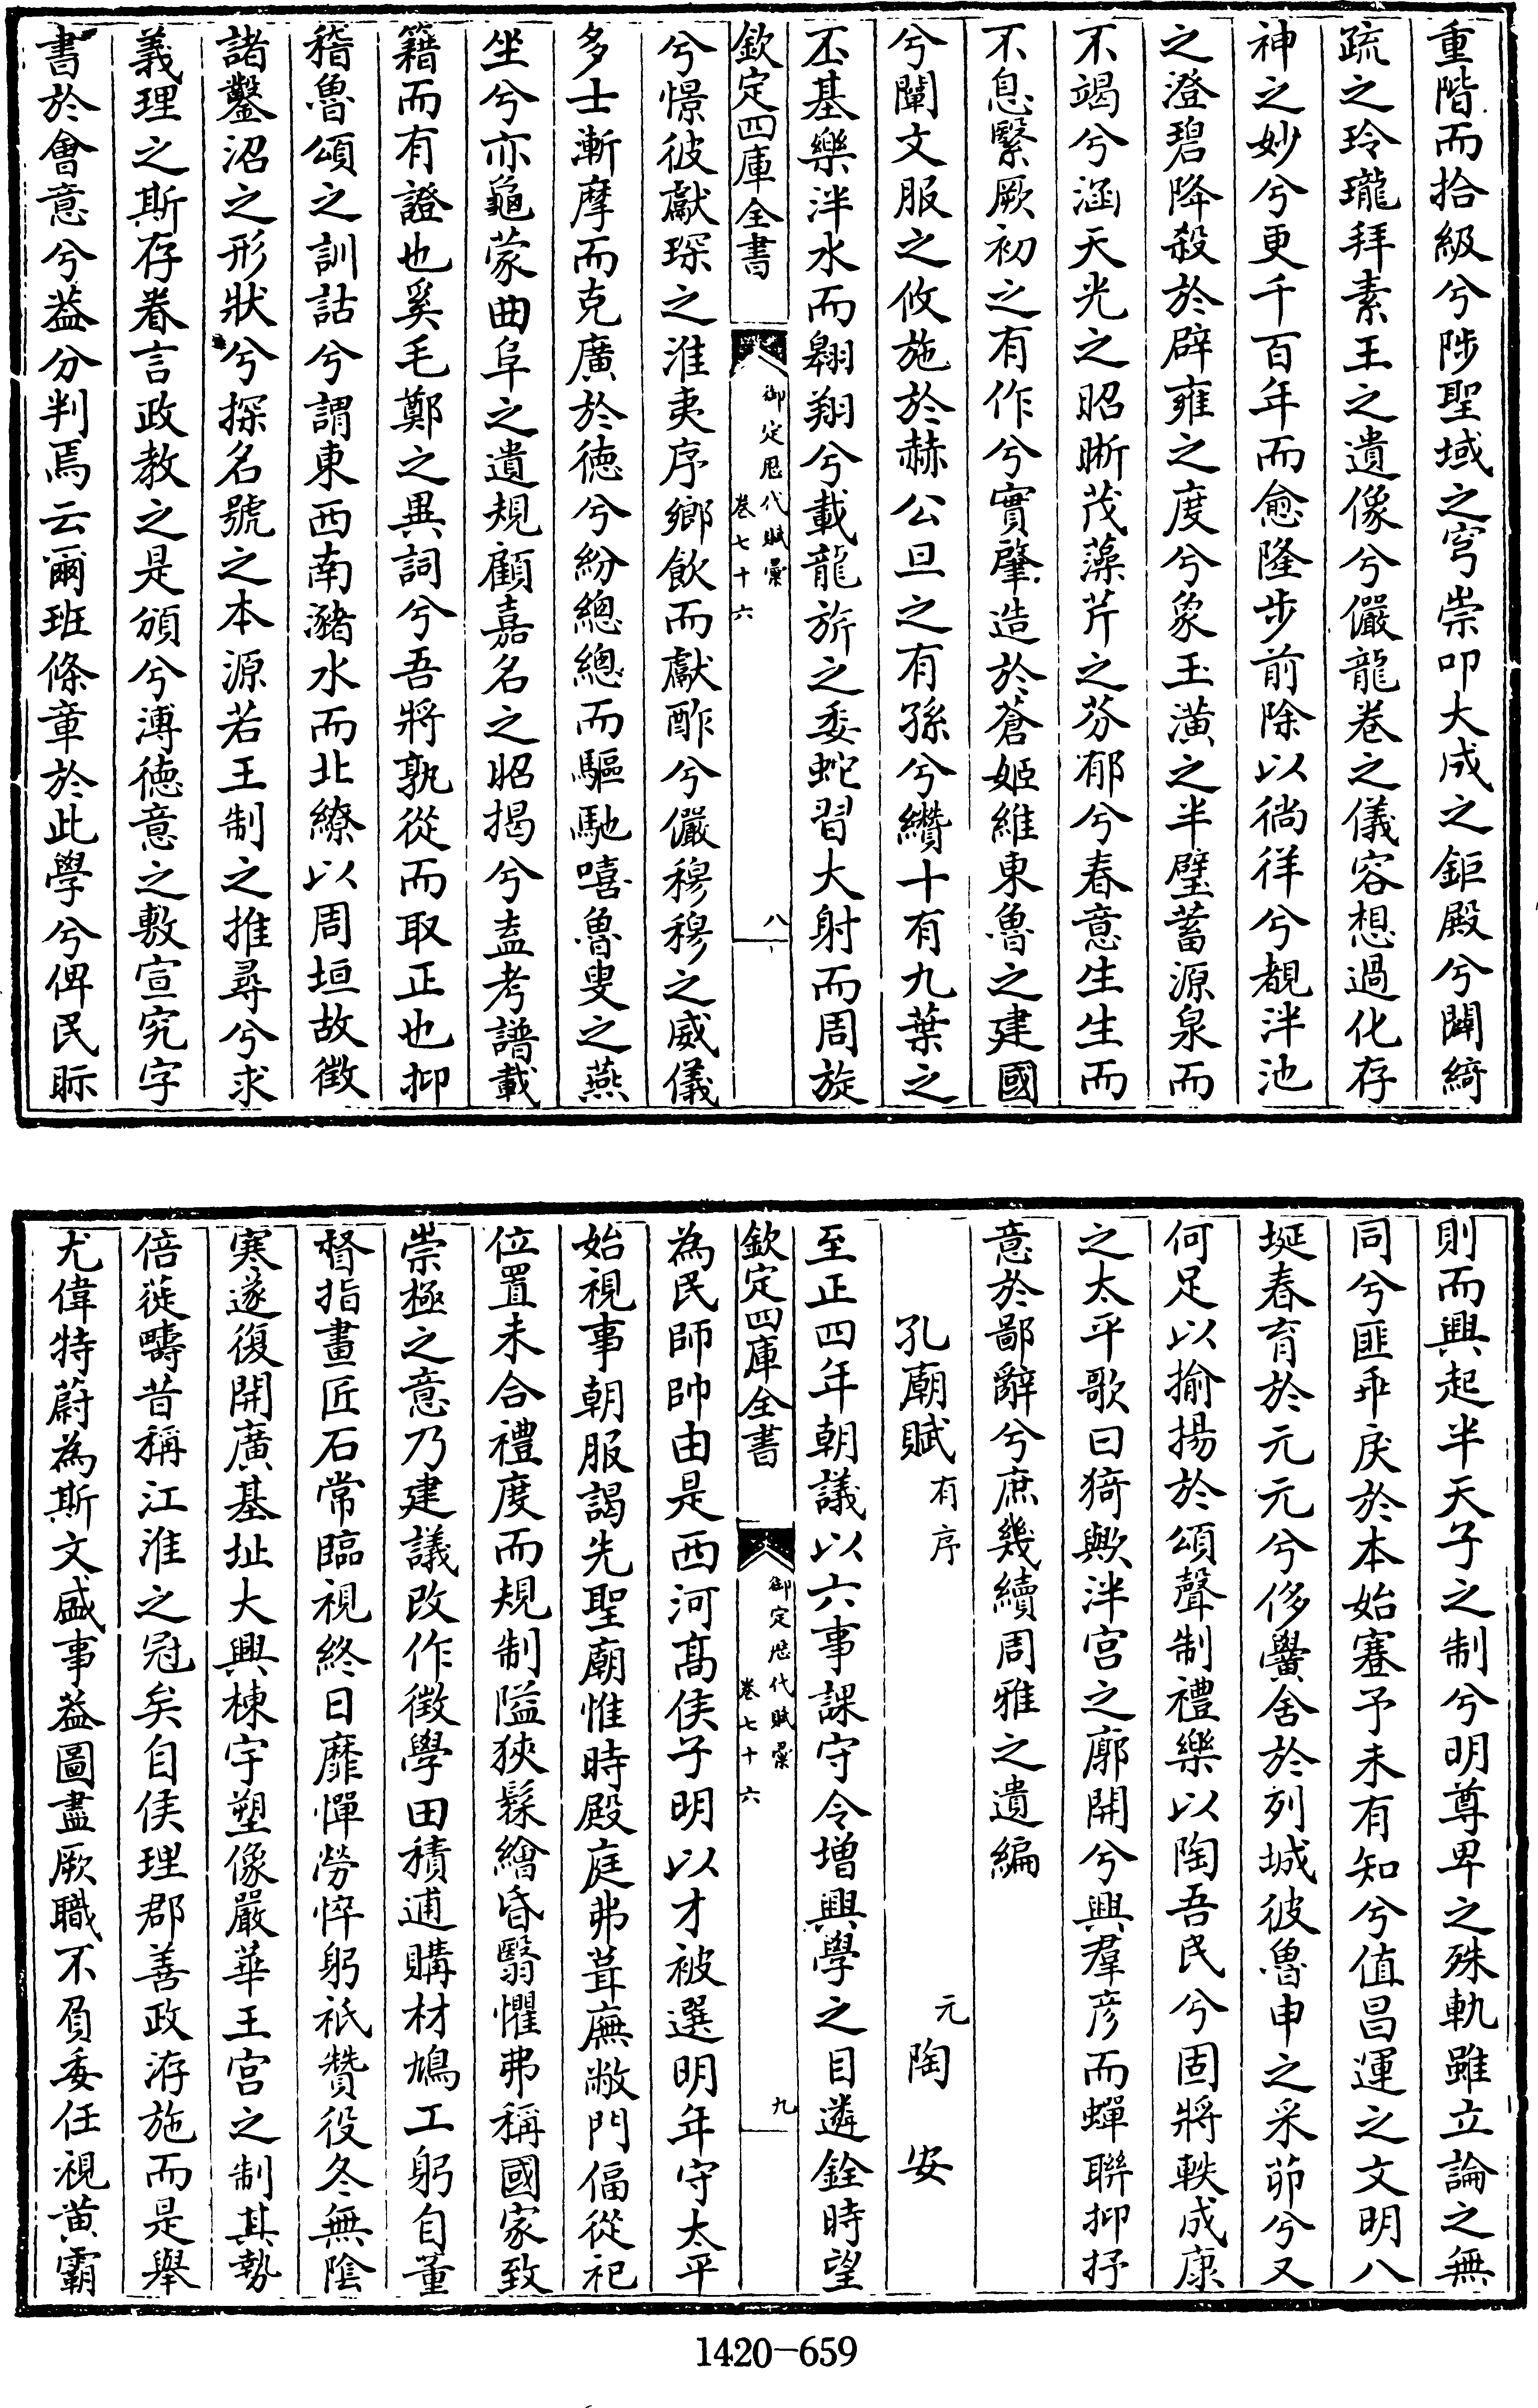 重階而拾級兮陟聖域之穹崇叩大成之鉅殿兮闢綺
疏之玲瓏拜素王之遺像兮儼龍卷之儀容想過化存
神之妙兮更千百年而愈隆步前除以徜徉兮覩泮池
之澄碧降殺於辟雍之度兮象玉潢之半璧蓄源泉而
不竭兮涵天光之昭晰茂藻芹之芬郁兮春意生生而
不息緊厥初之有作兮實肇造於蒼姬維東魯之建國
兮闡文服之攸施於赫公旦之有孫兮纘十有九葉之
丕基樂泮水而翱翔兮載龍旂之委蛇習大射而周旋
欽定四庫全書
御定歷代賦彙
卷七十六
八
兮憬彼獻琛之淮夷序鄉飲而獻酢兮儼穆穆之威儀
多士漸摩而克廣於德兮紛總總而驅馳嘻魯叟之燕
坐兮亦龜蒙曲阜之遺規顧嘉名之昭揭兮盍考譜載
籍而有證也奚毛鄭之異詞兮吾將孰從而取正也抑
稽魯頌之訓詁兮謂東西南瀦水而北繚以周垣故徵
諸鑿沼之形狀兮探名號之本源若王制之推尋兮求
義理之斯存眷言政教之是頒兮溥德意之敷宣究字
書於會意兮葢分判焉云爾班條章於此學兮俾民眎
則而興起半天子之制兮明尊卑之殊軌雖立論之無
同兮匪乖戾於本始蹇予未有知兮值昌運之文明八
埏春育於元元兮侈黌舍於列城彼魯申之采茆兮又
何足以揄揚於頌聲制禮樂以陶吾民兮固將軼成康
之太平歌曰猗歟泮宫之廓開兮興羣彥而蟬聯抑抒
意於鄙辭兮庶幾續周雅之遺編
孔廟賦有序
元陶安
至正四年朝議以六事課守令增興學之目遴銓時望
欽定四庫全書
御定歷代賦彙
卷七十六
九
為民師帥由是西河髙侯子明以才被選明年守太平
始視事朝服謁先聖廟惟時殿庭弗葺廡敝門偪從祀
位置未合禮度而規制隘狹髹繪昏翳懼弗稱國家致
崇極之意乃建議改作徵學田積逋購材鳩工躬自董
督指畫匠石常臨視終日靡憚勞悴躬祇贊役冬無陰
寒遂復開廣基址大興棟宇塑像嚴華王宫之制其勢
倍蓰疇昔稱江淮之冠矣自侯理郡善政洊施而是舉
尤偉特蔚為斯文盛事葢圖盡厥職不負委任視黄霸
1420-659